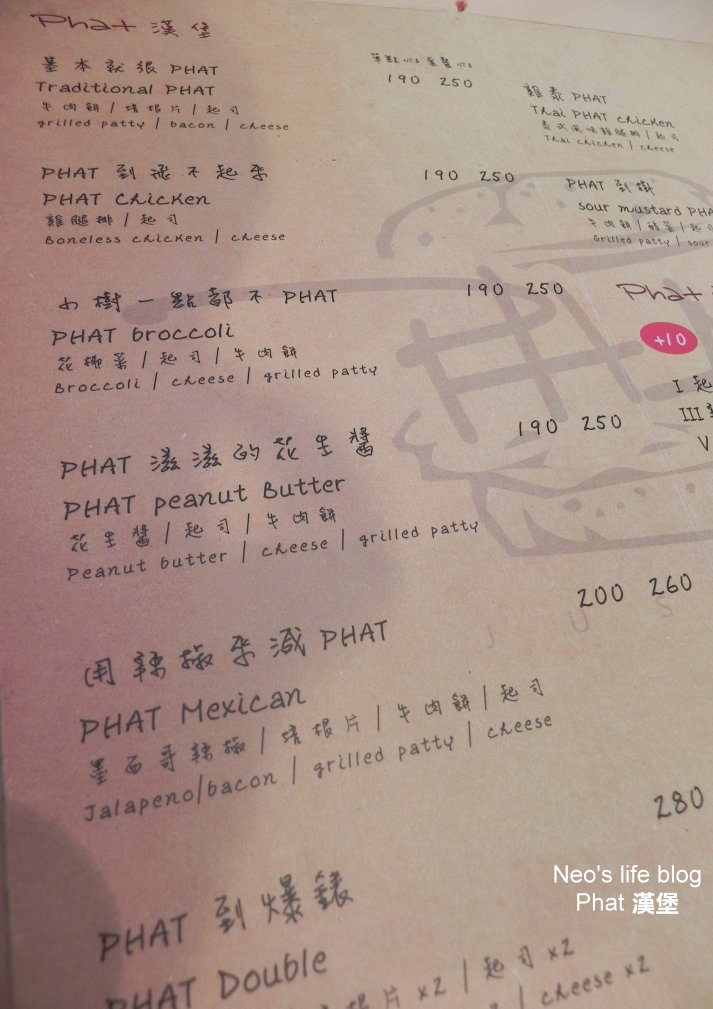 Phat 漢堡
基本就很 PHAT
190 250
Traditional PHAT
牛肉餅 | 培根片 | 起司
grilled patty | bacon | cheese
PHAT 到飛不起來
190 250
PHAT Chicken
雞腿排 | 起司
Boneless chicken | cheese
小樹一點都不 PHAT
190 250
PHAT broccoli
花椰菜 | 起司 | 牛肉餅
Broccoli | cheese | grilled patty
PHAT 滋滋的花生醬
190 250
PHAT peanut Butter
花生醬 | 起司 | 牛肉餅
Peanut butter | cheese | grilled patty
用辣椒來減 PHAT
200 260
PHAT Mexican
墨西哥辣椒 | 培根片 | 牛肉餅 | 起司
Jalapeno/bacon | grilled patty | cheese
PHAT 到爆錶
280
PHAT Double
根片 x2 | 起司 x2
| cheese x2
雞泰 PHAT
Thai PHAT chicken
泰式風味雞腿排 | 起司
Thai chicken | cheese
PHAT 到掛
sour mustard PHA
牛肉餅 | 酸菜 | 起司
Grilled patty | sour
Phat
+10
I 起
III
V
JUS
Neo's life blog
Phat 漢堡